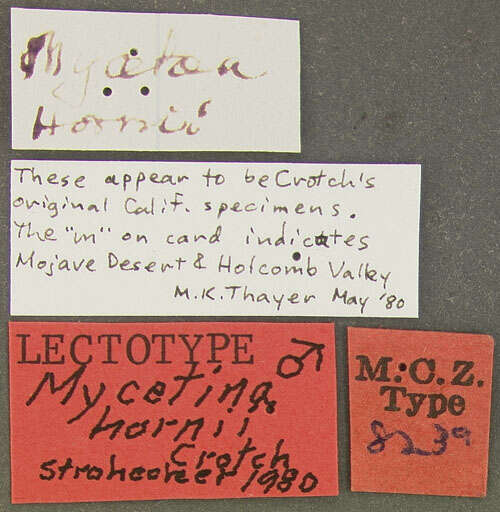 Mycetaea
Hornii
These appear to be Crotch's
original Calif. specimens.
The "m" on card indicates
Mojave Desert & Holcomb Valley
M.K. Thayer May '80
LECTOTYPE ♂
Mycetina
hornii
Crotch
Strohecker 1980
M.C.Z.
Type
8239